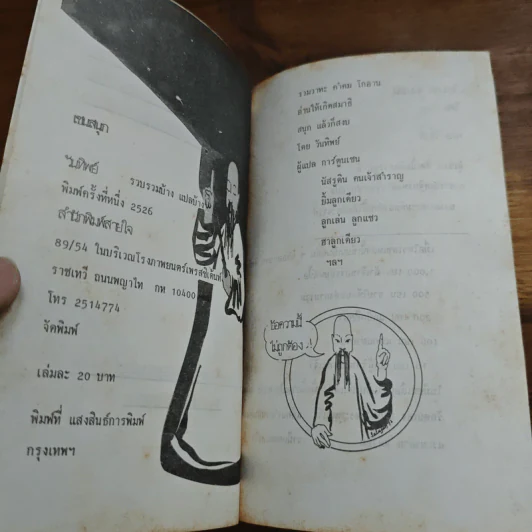 เซนสนุก
วันทิพย์
รวบรวมบ้าง แปลบ้าง
พิมพ์ครั้งที่หนึ่ง 2526
สำนักพิมพ์สายใจ
89/54 ในบริเวณโรงภาพยนตร์เพรสซิเด้นท์
ราชเทวี ถนนพญาไท กท 10400
โทร 2514774
จัดพิมพ์
เล่มละ 20 บาท
พิมพ์ที่ แสงสินธ์การพิมพ์
กรุงเทพฯ
รวมวาทะ คำคม โกอาน
อ่านให้เกิดสมาธิ
สนุก แล้วก็สงบ
โดย วันทิพย์
ผู้แปล การ์ตูนเซน
นัสรูดิน คนเจ้าสำราญ
ยิ้มลูกเดียว
ลูกเล่น ลูกแซว
ฮาลูกเดียว
ฯลฯ
ข้อความนี้
ไม่ถูกต้อง